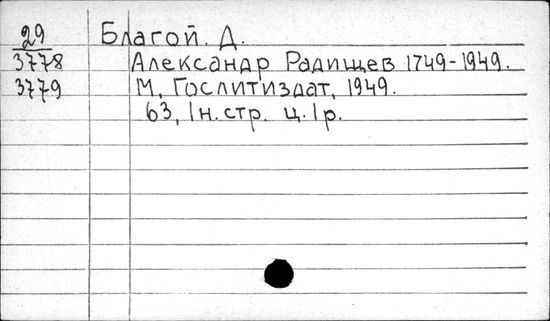 29 Благой. Д.
3778 Александр Радищев 1749-1949.
3779 М, Гослитиздат, 1949.
63, 1н. стр. ц. 1р.